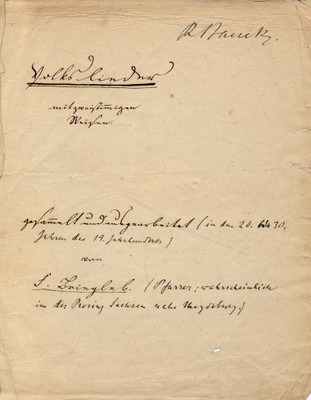 Volkslieder
mit zweistimmigen
Weisen.
gesammelt und ausgearbeitet (in den 20. bis 30.
Jahren des 19. Jahrhunderts)
von
(Pfarrer, wahrscheinlich
in der Provinz Sachsen nahe Magdeburg.)